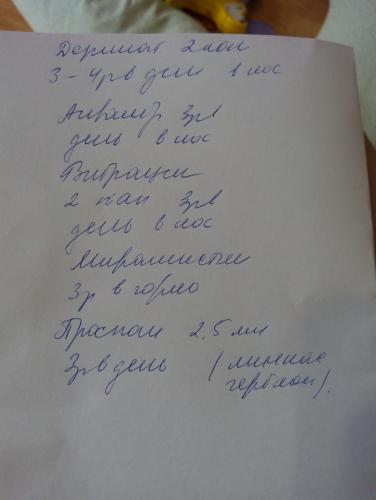 Деринат 2 кап
3-4 р в день в нос
Аквамар 3 р в
день в нос
Виброцил
2 кап 3 р в
день в нос
Мирамистин
3 р в горло
Проспан 2,5 мл
3 р в день (линкас
гербион).